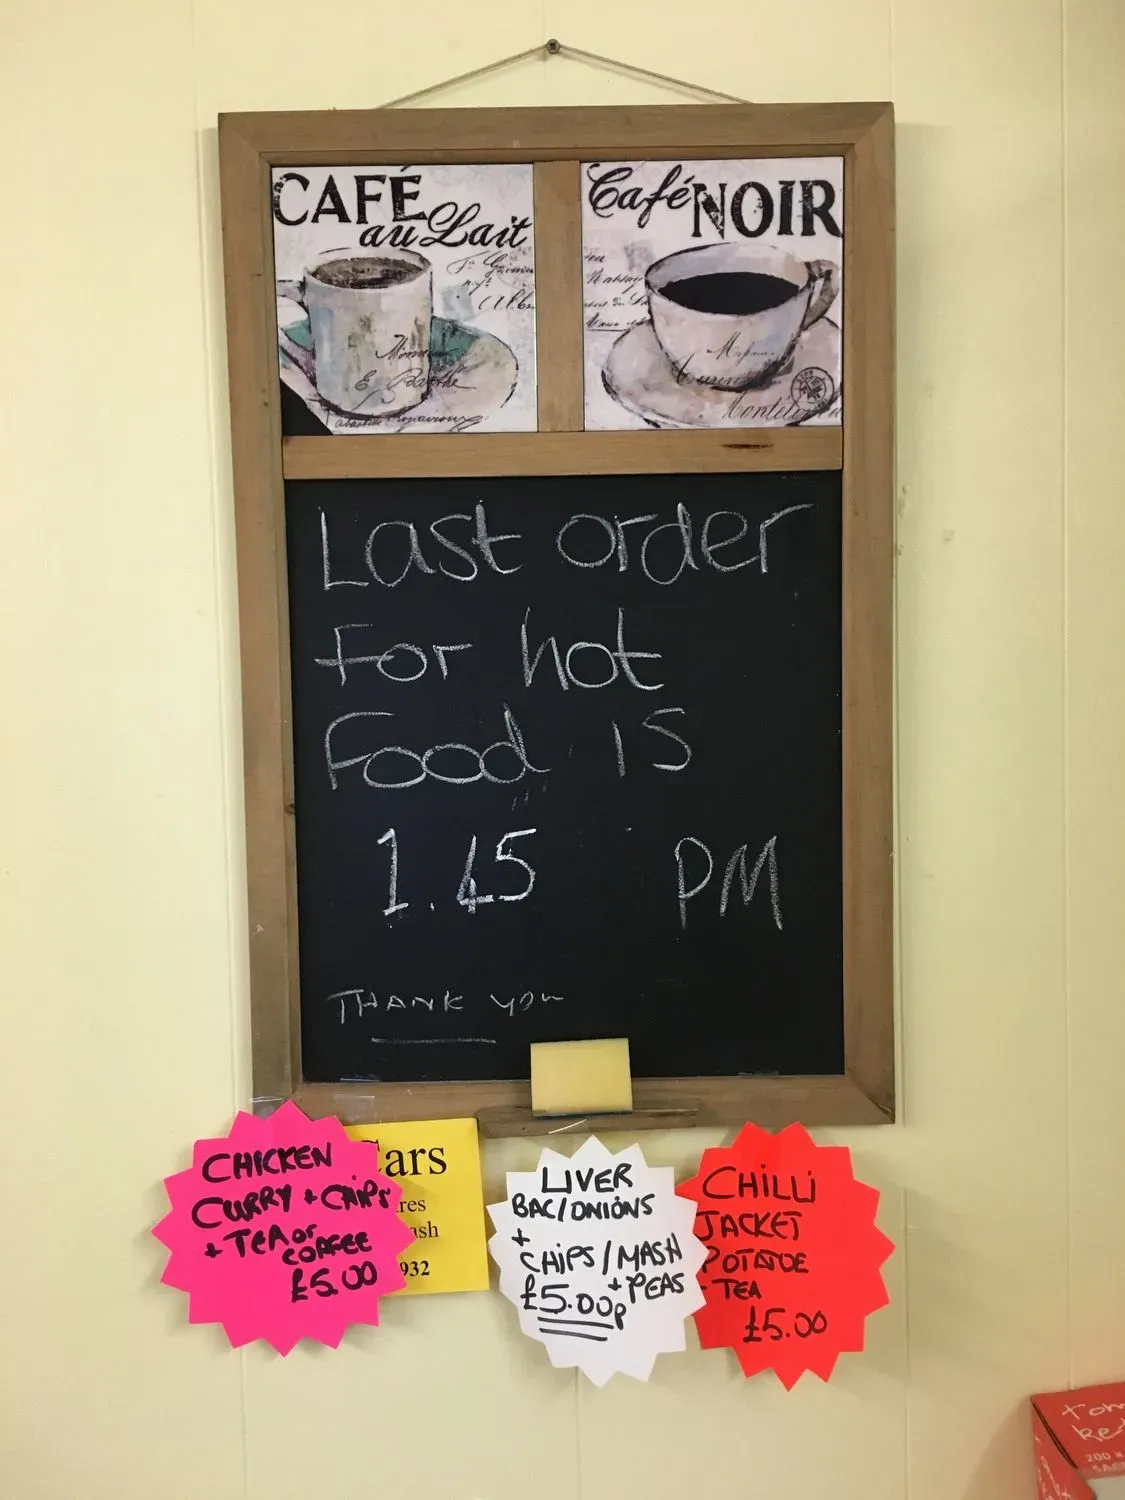 CAFÉ
au Lait
Café NOIR
Last order
For hot
Food is
1.45 PM
THANK YOU
CHICKEN
CURRY + CHIPS
+ TEA or
COFFEE
£5.00
Cars
932
LIVER
BAC/ONIONS
+
CHIPS/MASH
+ PEAS
£5.00p
CHILLI
JACKET
POTATOE
TEA
£5.00
200 x